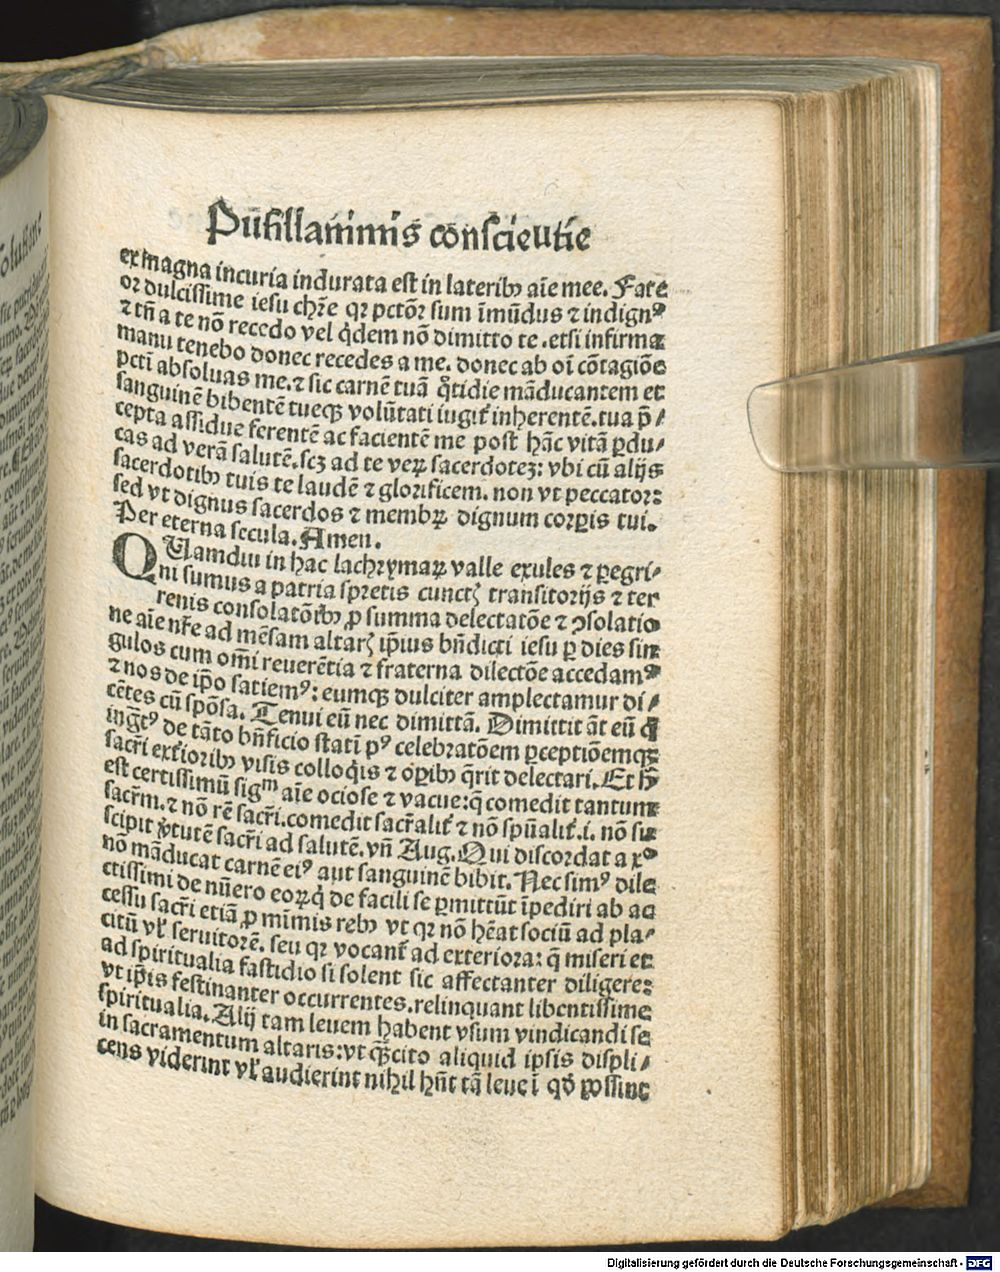 Pusillanimis conscientie
ex magna incuria indurata est in lateribꝰ aīe mee. Fate
or dulcissime iesu chr̄e qꝛ pctōꝛ sum īmūdus ⁊ indignꝰ
⁊ tn̄ a te nō recedo vel qͥdem nō dimitto te. etsi infirma
manu tenebo donec recedes a me. donec ab oī cōtagiōe
pcti absoluas me. ⁊ sic carnē tuā qͦtidie māducantem et
sanguinē bibentē tueqꝫ volūtati iugiṫ inherentē. tua p̄/
cepta assidue ferentē ac facientē me post hāc vitā ꝑdu/
cas ad verā salutē. scꝫ ad te veꝝ sacerdotez: vbi cū alijs
sacerdotibꝰ tuis te laudē ⁊ glorificem. non vt peccator:
sed vt dignus sacerdos ⁊ membꝝ dignum corꝑis tui.
Per eterna secula. Amen.
QUamdiu in hac lachrymaꝝ valle exules ⁊ ꝑegri/
ni sumus a patria spretis cunctꝭ transitorijs ⁊ ter
renis consolatōibꝰ ꝓ summa delectatōe ⁊ ꝯsolatio
ne aīe nr̄e ad mēsam altarꝭ ip̄ius bn̄dicti iesu ꝑ dies sin
gulos cum om̄i reuerētia ⁊ fraterna dilectōe accedamꝰ
⁊ nos de ip̄o satiemꝰ: eumqꝫ dulciter amplectamur di/
cētes cū spōsa. Tenui eū nec dimittā. Dimittit āt eū q̇
ingͣtꝰ de tāto bn̄ficio statī pꝰ celebratōem ꝑceptiōemqꝫ
sacr̄i ext̓ioribꝰ visis colloqͥis ⁊ oꝑibꝰ qͥrit delectari. Et h̄
est certissimū sigᵐ aīe ociose ⁊ vacue: q̄ comedit tantum
sacr̄m. ⁊ nō rē sacr̄i. comedit sacr̄aliṫ ⁊ nō spūaliṫ. i. nō su
scipit v̓tutē sacr̄i ad salutē. vn̄ Aug. Qui discordat a xº
nō māducat carnē eiꝰ aut sanguinē bibit. Nec simꝰ dile
ctissimi de nūero eoꝝ qͥ de facili se ꝑmittūt īpediri ab ac
cessu sacr̄i etiā ꝓ mīmis rebꝰ vt qꝛ nō hēat sociū ad pla/
citū vl̓ seruitorē. seu qꝛ vocanṫ ad exteriora: q̄ miseri et
ad spiritualia fastidiosi solent sic affectanter diligere:
vt ip̄is festinanter occurrentes. relinquant libentissime
spiritualia. Alij tam leuem habent vsum vindicandi se
in sacramentum altaris: vt qͣꝫcito aliquid ipsis displi/
cens viderint vl̓ audierint nihil hn̄t tā leue ī qͦd possint